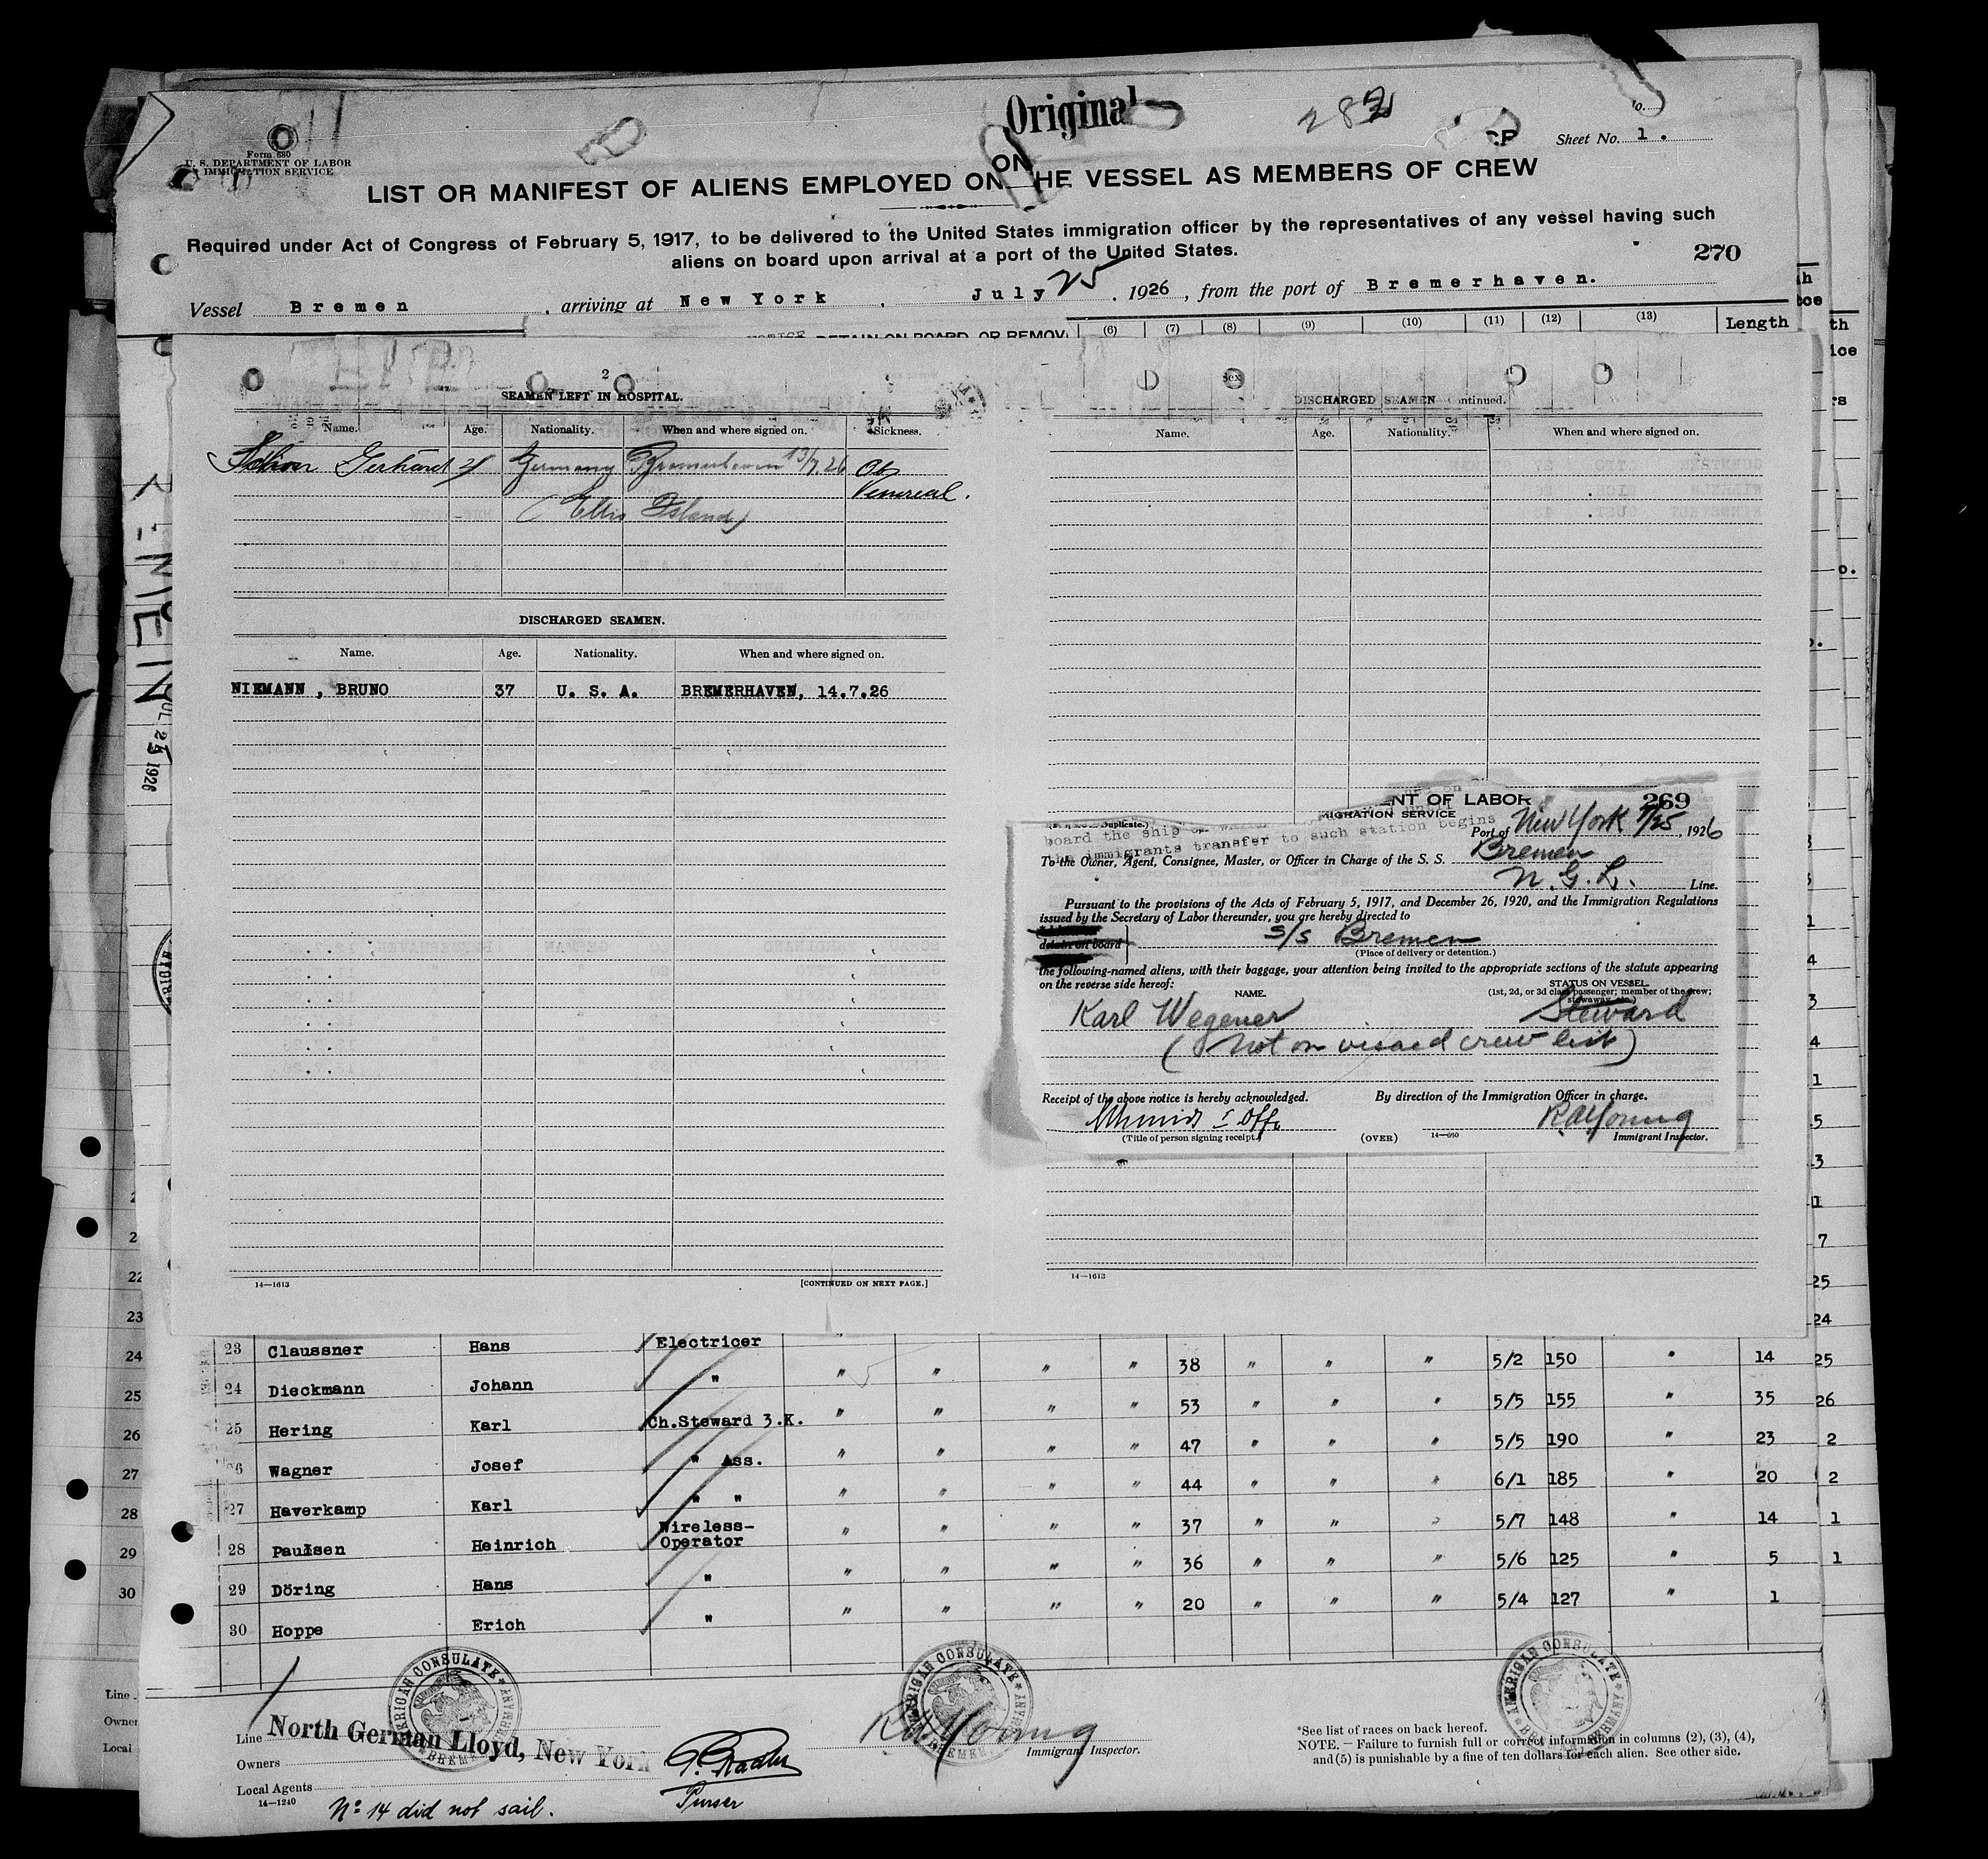 Original
282
Form 680
U. S. DEPARTMENT OF LABOR
IMMIGRATION SERVICE
Sheet No. 1 .
LIST OR MANIFEST OF ALIENS EMPLOYED ON THE VESSEL AS MEMBERS OF CREW
Required under Act of Congress of February 5, 1917, to be delivered to the United States immigration officer by the representatives of any vessel having such
aliens on board upon arrival at a port of the United States.
270
Vessel Bremen , arriving at New York . July 25 . 1926 , from the port of Bremerhaven.
(6) (7) (8) (9) (10) (11) (12) (13) Length
2
SEAMEN LEFT IN HOSPITAL.
Name. Age. Nationality. When and where signed on. Sickness.
Gerhard Germany Bremerhaven 13/7.26
Venereal.
(Ellis Island)
DISCHARGED SEAMEN.
Name. Age. Nationality. When and where signed on.
NIEMANN , BRUNO 37 U. S. A. BREMERHAVEN, 14.7.26
14—1613 [CONTINUED ON NEXT PAGE.]
DISCHARGED SEAMEN ontinued.
Name. Age. Nationality. When and where signed on.
ENT OF LABOR 269
MIGRATION SERVICE
Duplicate.)
board the ship
immigrants transfer to such station begins
Port of New York 7/25, 1926
To the Owner, Agent, Consignee, Master, or Officer in Charge of the S. S. Bremen
N. G. L. Line.
Pursuant to the provisions of the Acts of February 5, 1917, and December 26, 1920, and the Immigration Regulations
issued by the Secretary of Labor thereunder, you are hereby directed to
detain on board s/s Bremen
(Place of delivery or detention.)
the following-named aliens, with their baggage, your attention being invited to the appropriate sections of the statute appearing
on the reverse side hereof:
NAME. STATUS ON VESSEL.
(1st, 2d, or 3d class passenger; member of the crew;
stowaway, etc.)
Karl Wegener Steward
(Not on visaed crew list)
Receipt of the above notice is hereby acknowledged. By direction of the Immigration Officer in charge.
I Offz R A Young
(Title of person signing receipt.) (OVER) 14—660 Immigrant Inspector.
14—1613
23 Claussner Hans Electricer
24 Dieckmann Johann " " " " " 38 " " " 5/2 150 " 14
25 Hering Karl Ch.Steward 3.K. " " " " 53 " " " 5/5 155 " 35
26 Wagner Josef " Ass. " " " " 47 " " " 5/5 190 " 23
27 Haverkamp Karl " " " " " " 44 " " " 6/1 185 " 20
28 Paulsen Heinrich Wireless-Operator " " " " 37 " " " 5/7 148 " 14
29 Döring Hans " " " " " 36 " " " 5/6 125 " 5
30 Hoppe Erich " " " " " 20 " " " 5/4 127 " 1
AMERICAN CONSULATE
BREMEN GERMANY
Line North German Lloyd, New York
Owners
Local Agents
14—1240
Purser
R A Young
Immigrant Inspector.
*See list of races on back hereof.
NOTE.—Failure to furnish full or correct information in columns (2), (3), (4),
and (5) is punishable by a fine of ten dollars for each alien. See other side.
No 14 did not sail.